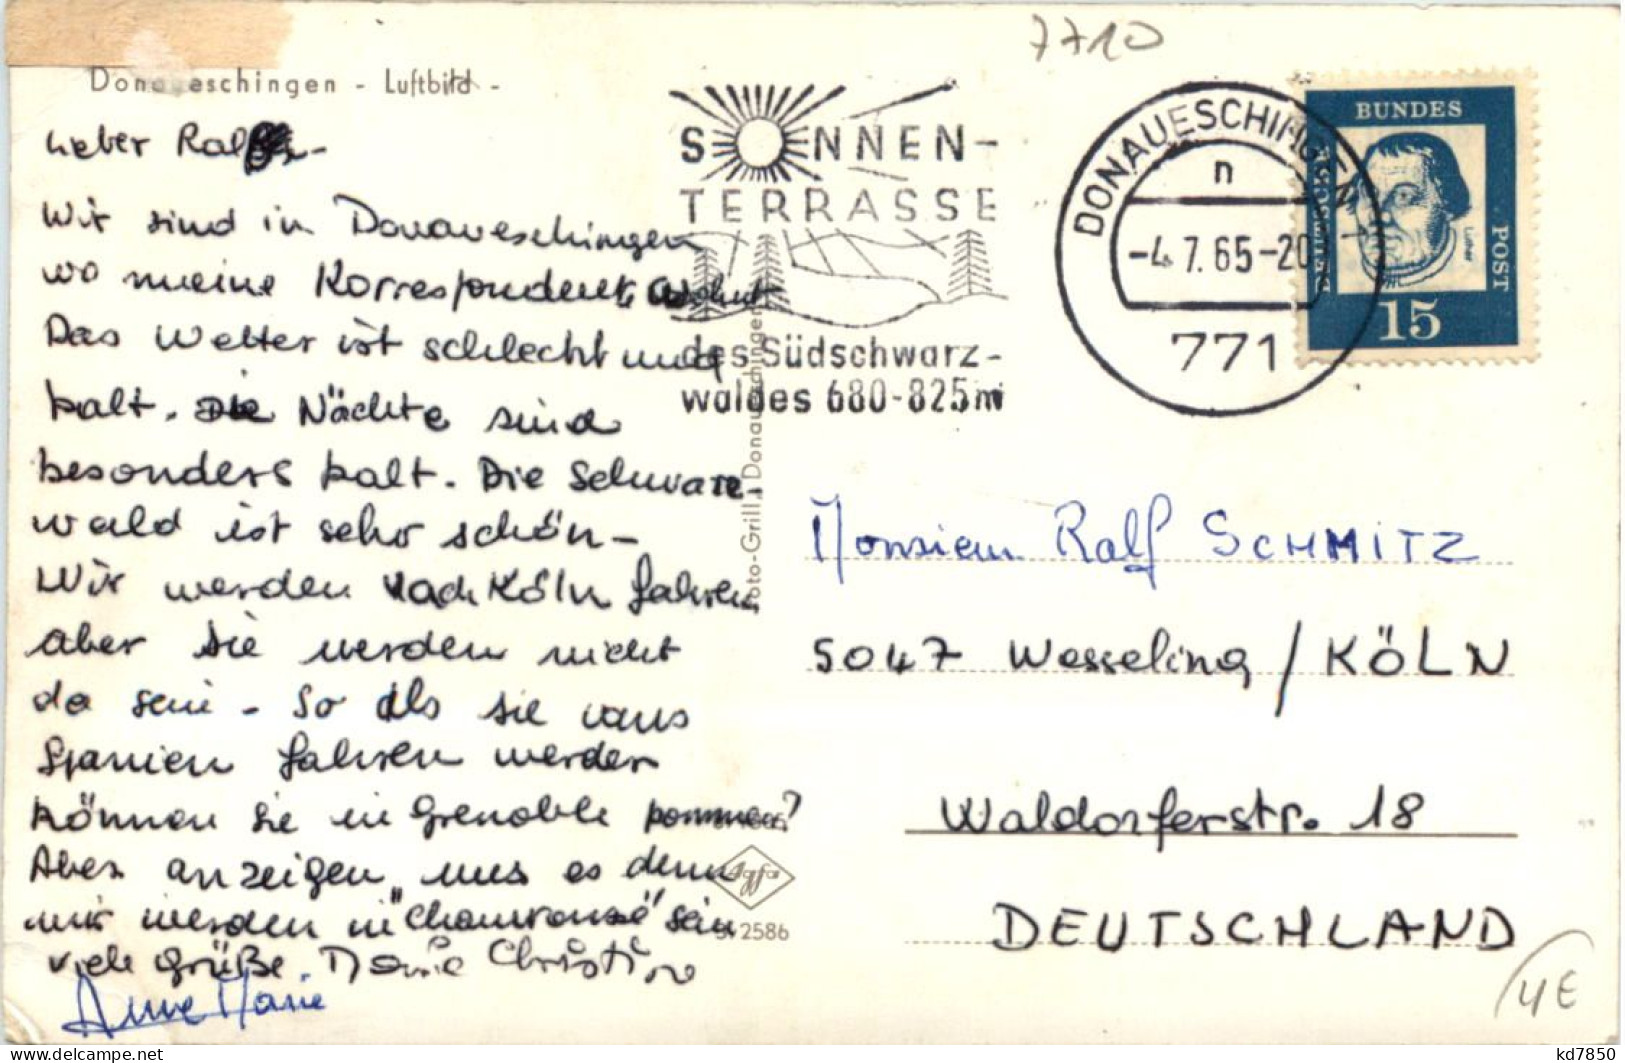 7710
Donaueschingen - Luftbild -
SONNEN-
TERRASSE
des Südschwarz-
waldes 680-825 m
DONAUESCHINGEN 1
n
-4.7.65-20
771
DEUTSCHE
BUNDES
POST
Luther
15
Lieber Ralf
Wir sind in Donaueschingen
wo meine Korrespondent, wohnt
Das Wetter ist schlecht und
kalt. Die Nächte sind
besonders kalt. Die Schwarz-
wald ist sehr schön-
Wir werden nach Köln fahren
aber Sie werden nicht
da sein - So als sie
Spanien fahren werden
können Sie in Grenoble kommen?
Aber anzeigen uns es denn
wir werden in "Chamrousse" sein
viele Grüße Marie Christine
Anne Marie
Foto-Grill, Donaueschingen
Agfa
2586
Monsieur Ralf SCHMITZ
5047 Wesseling / KÖLN
Waldorferstr. 18
DEUTSCHLAND
4€
delcampe.net
kd7850